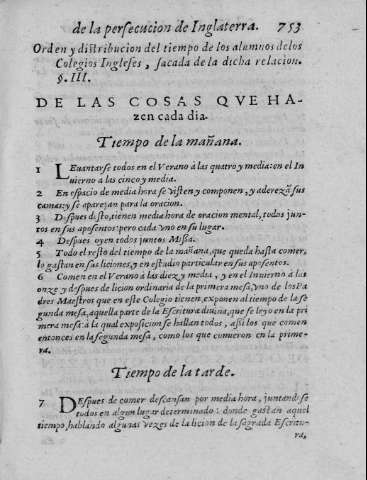 de la persecucion de Inglaterra. 753
Orden y distribucion del tiempo de los alumnos de los
Colegios Ingleses, sacada de la dicha relacion.
§. III.
DE LAS COSAS QVE HA-
zen cada dia.
Tiempo de la mañana.
1 LEuantarse todos en el Verano à las quatro y media: en el In
uierno a las cinco y media.
2 En espacio de media hora se visten y componen, y adereçã sus
camas: y se aparejan para la oracion.
3 Despues desto, tienen media hora de oracion mental, todos jun-
tos en sus aposentos: pero cada vno en su lugar.
4 Despues oyen todos juntos Missa.
5 Todo el resto del tiempo de la mañana, que queda hasta comer,
lo gastan en sus liciones, y en estudio particular en sus aposentos.
6 Comen en el Verano à las diez y media, y en el Inuierno à las
onze y despues de licion ordinaria de la primera mesa, vno de los Pa
dres Maestros que en este Colegio tienen, exponen al tiempo de la se
gunda mesa, aquella parte de la Escritura diuina, que se leyo en la pri
mera mesa: à la qual exposicion se hallan todos, assi los que comen
entonces en la segunda mesa, como los que comieron en la prime-
ra.
Tiempo de la tarde.
7 DEspues de comer descansan por media hora, juntandose
todos en algun lugar determinado: donde gastan aquel
tiempo, hablando algunas vezes de la licion de la sagrada Escritu-
ra,